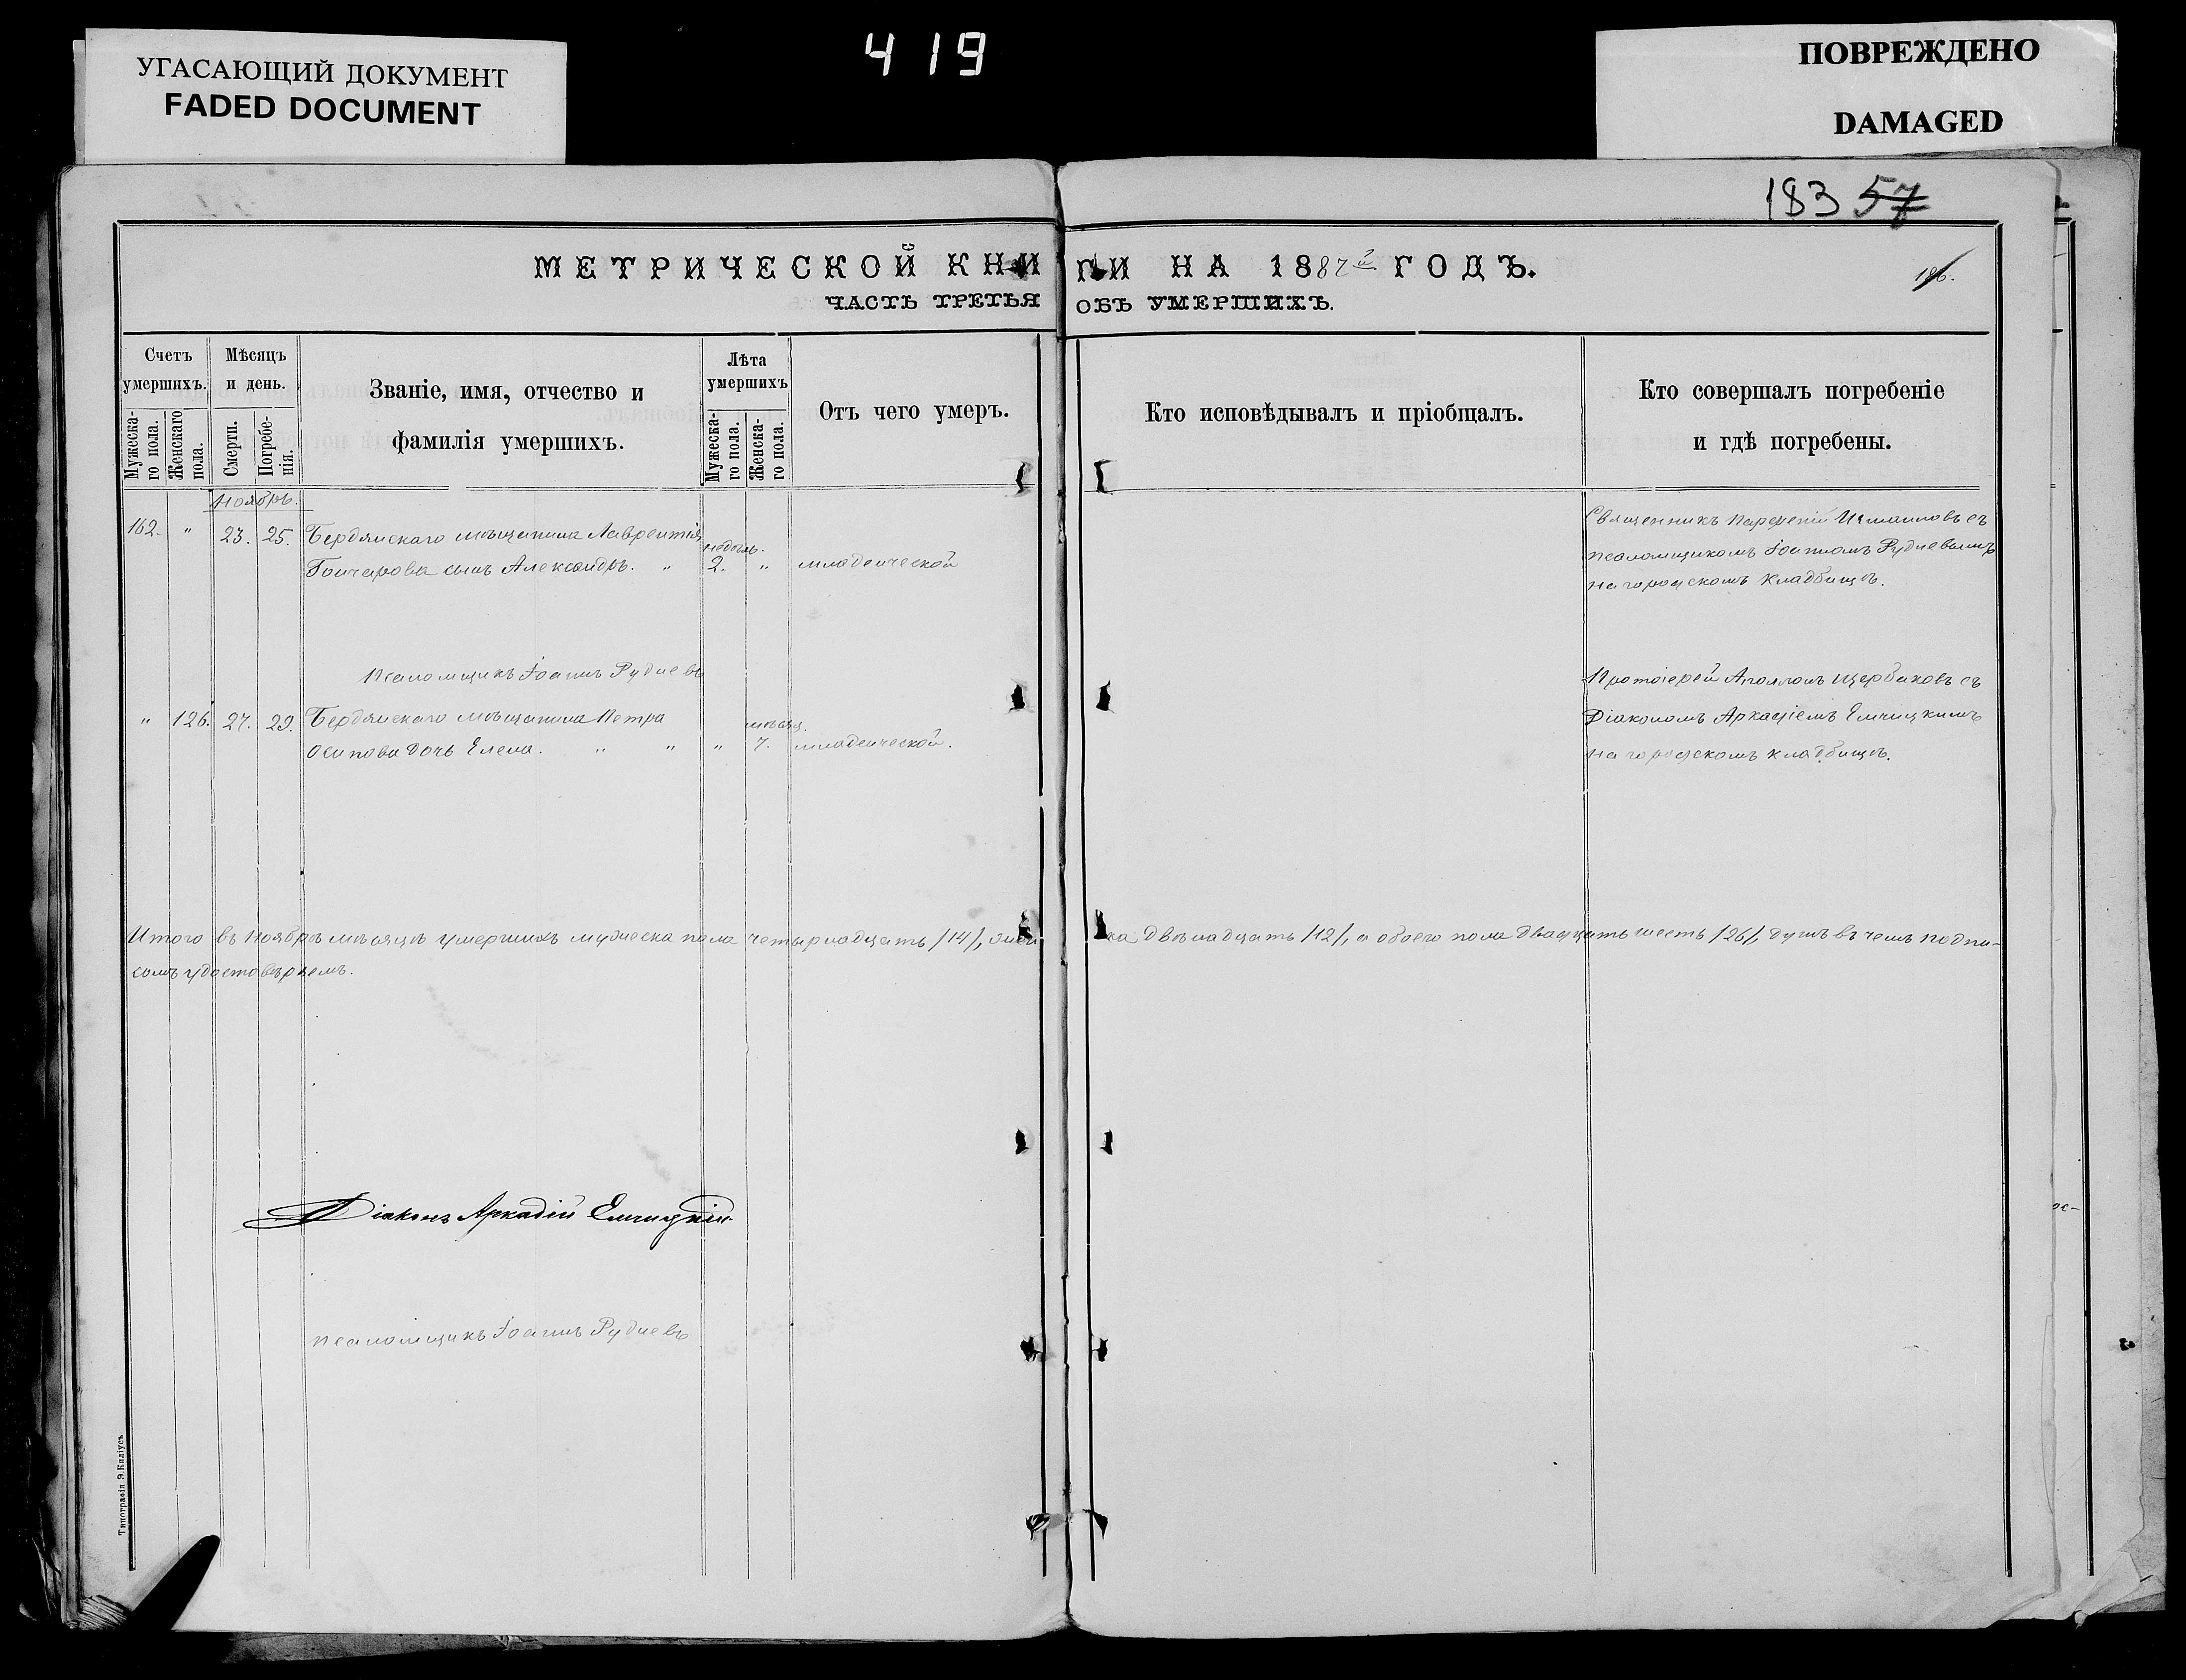 УГАСАЮЩИЙ ДОКУМЕНТ
FADED DOCUMENT
419
ПОВРЕЖДЕНО
DAMAGED
183 57
МЕТРИЧЕСКОЙ КНИГИ НА 1887й ГОДЪ.
186.
ЧАСТЬ ТРЕТЬЯ ОБЪ УМЕРШИХЪ.
Счетъ умершихъ.
Мужеска-го пола.
Женскаго пола.
Мѣсяцъ и день.
Смерти.
Погребе-нія.
Званіе, имя, отчество и
фамилія умершихъ.
Лѣта умершихъ
Мужеска-го пола.
Женска-го пола.
Отъ чего умеръ.
Кто исповѣдывалъ и пріобщалъ.
Кто совершалъ погребеніе
и гдѣ погребены.
Ноябрь.
162. " 23. 25. Бердянскаго мѣщанина Лаврентія
Гончарова сынъ Александръ. " недѣль. 2. " младенческой
Священникъ Парфеній съ
псаломщикомъ Іоанномъ Рудневымъ
на городскомъ кладбищѣ.
Псаломщикъ Іоаннъ Рудневъ
" 126. 27. 29. Бердянскаго мѣщанина Петра
Осипова дочь Елена. " " " мѣсяц. 7. младенческой.
Протоіерей Аполлонъ Щербаковъ съ
Діакономъ Аркадіемъ Емчицкимъ
на городскомъ кладбищѣ.
Итого въ Ноябрѣ мѣсяцѣ умершихъ мужеска пола четырнадцать /14/, женска двѣнадцать /12/, а обоего пола двадцать шесть /26/, душъ въ чемъ подпи-
сомъ удостовѣряемъ.
Діаконъ Аркадій Емчицкій.
псаломщикъ Іоаннъ Рудневъ
Типографія Э. Киліусъ